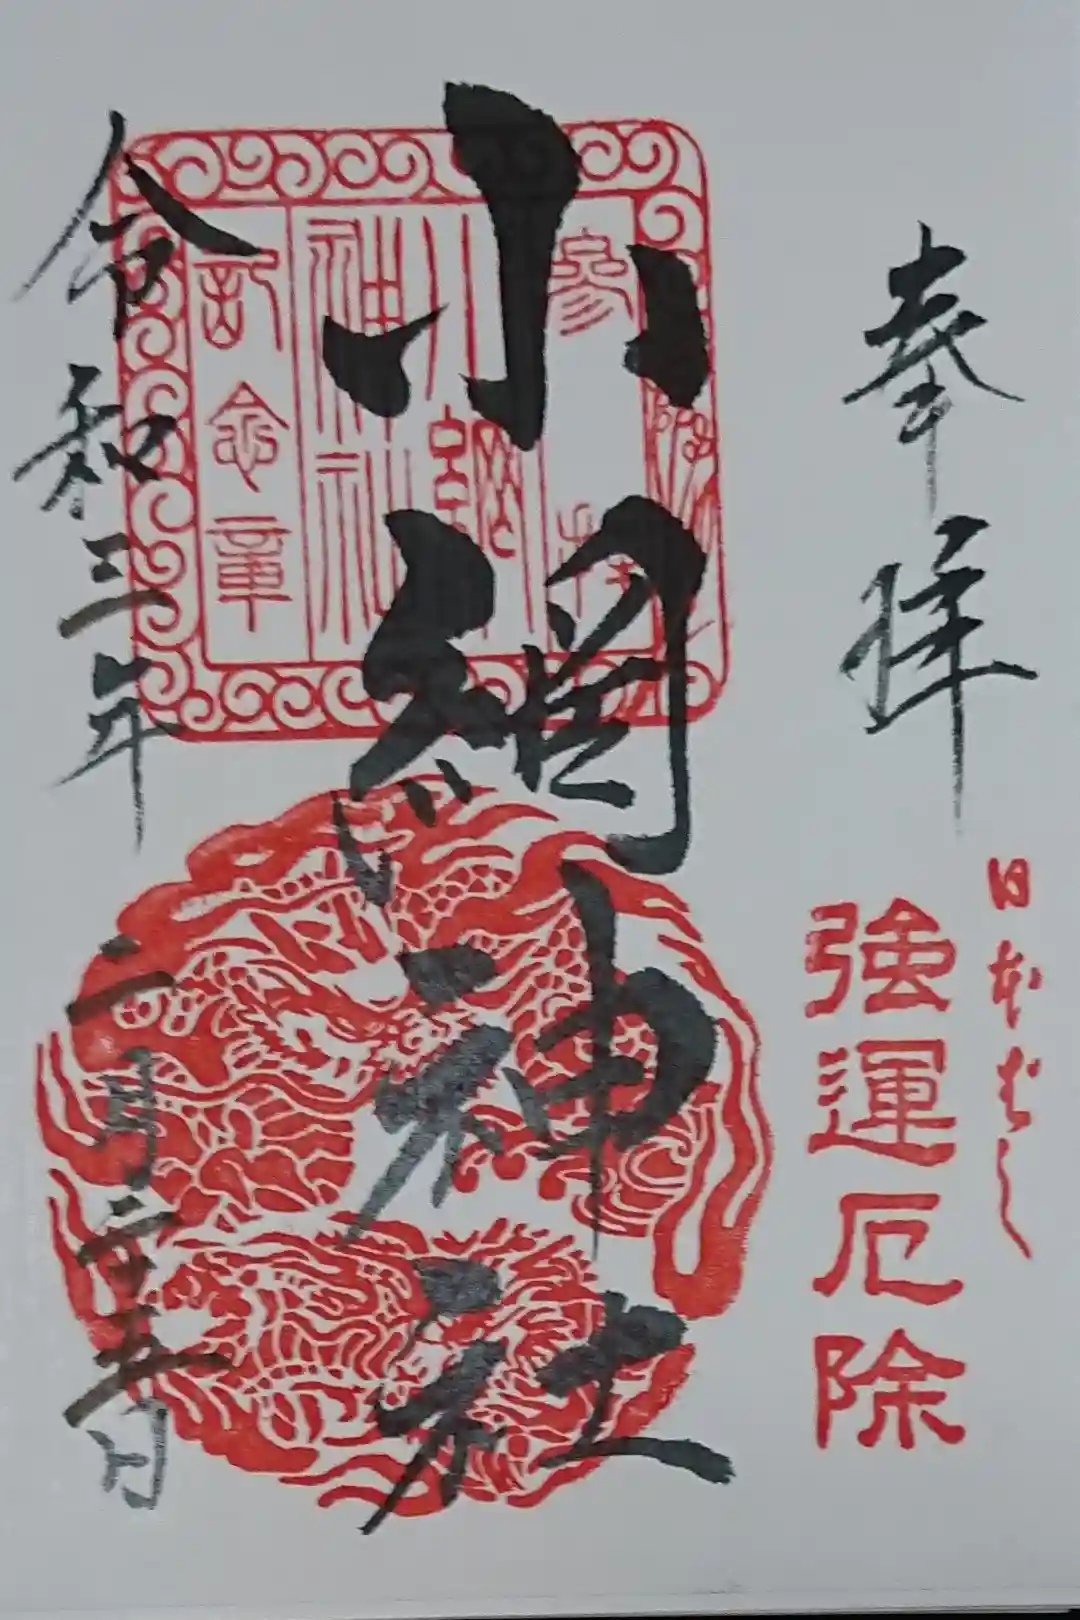 奉拝
日本ばし
強運厄除
小網神社
参拝
小網
神社
記念章
令和三年二月二十五日